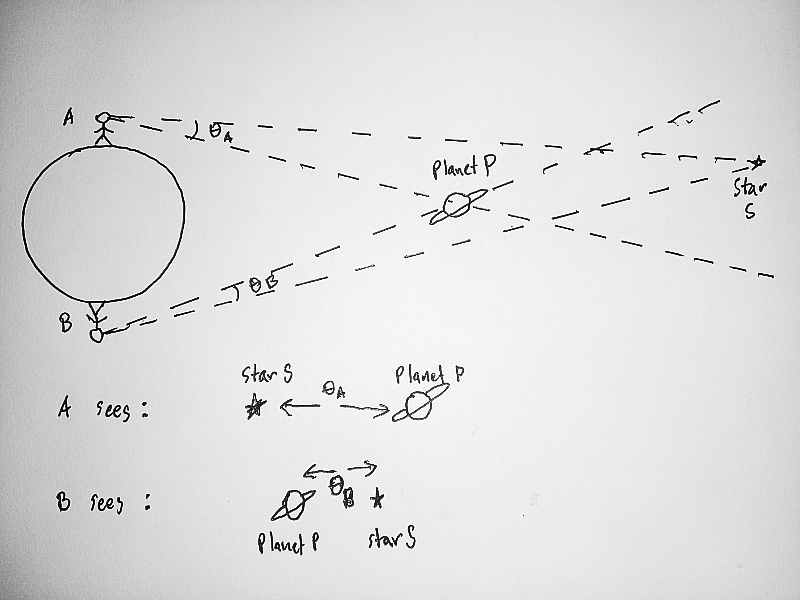 A
θA
Planet P
Star
S
θB
B
Star S
θA
Planet P
A sees:
B sees:
θB
Planet P
Star S